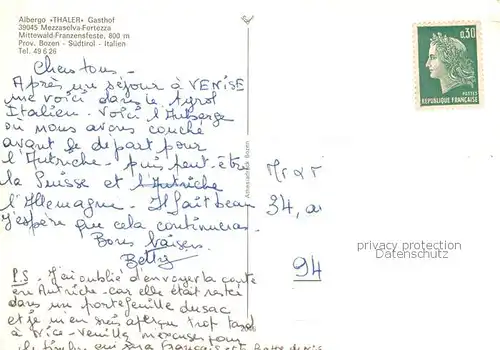 Albergo «THALER» Gasthof
39045 Mezzaselva-Fortezza
Mittewald-Franzensfeste, 800 m
Prov. Bozen - Südtirol - Italien
Tel. 49 6 26
0,30
POSTES
REPUBLIQUE FRANÇAISE
Chers tous -
Après un séjour à VENISE
me voici dans le Tyrol
Italien - Voici l'Auberge
où nous avons couché
avant le départ pour
l'Autriche - puis peut-être
la Suisse et l'Autriche
l'Allemagne - Il fait beau
J'espère que cela continuera -
Bons baisers.
Betty
P.S - J'ai oublié d'envoyer la carte
en Autriche - car elle était restée
dans un portefeuille du sac
et je m'en suis aperçu trop tard
à Nice - Veuillez m'excuser pour
le timbre qui sera Français et
Mr &
34, a
94
Bozen
privacy protection
Datenschutz